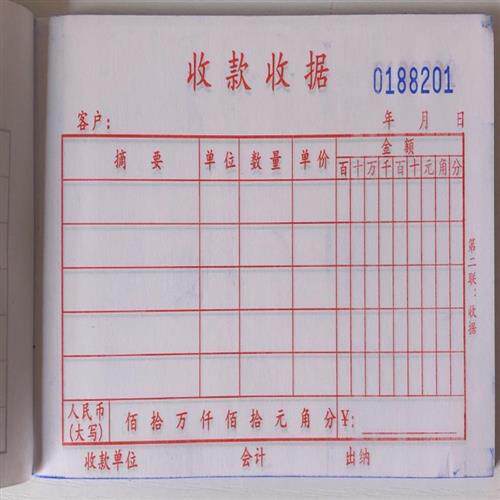 收款收据 0188201
客户: 年 月 日
摘要 单位 数量 单价 金额
百十万千百十元角分
人民币(大写) 佰拾万仟佰拾元角分 ¥:
收款单位 会计 出纳
第二联:收据